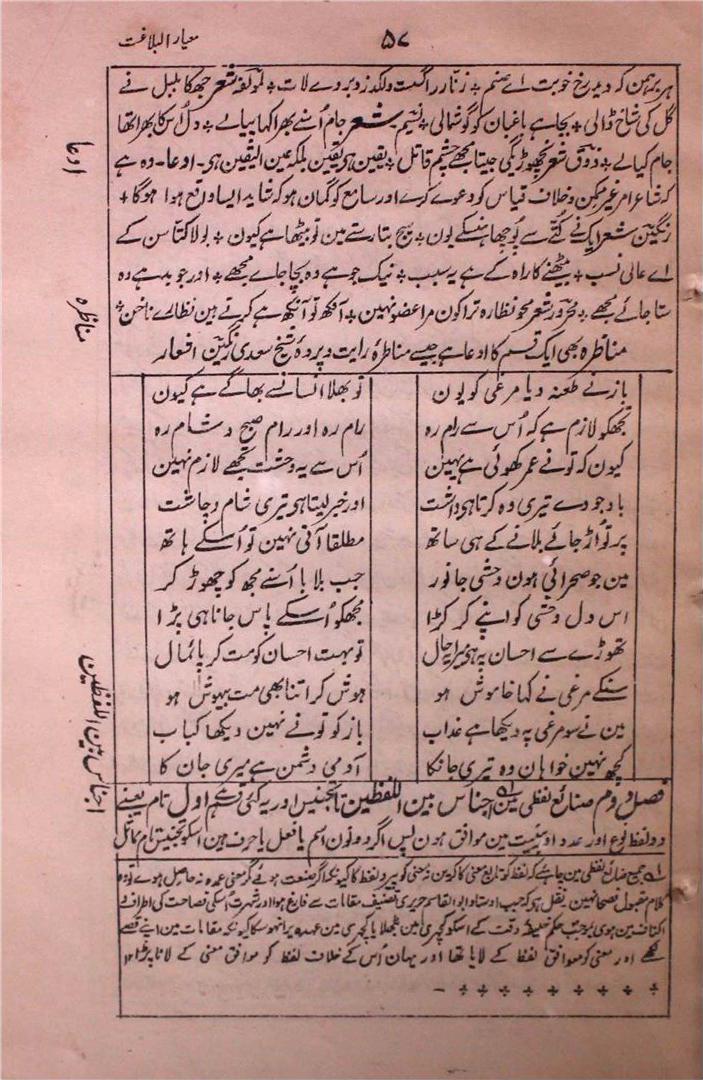 ۵۷
معیار البلاغت
ہر برہمن کہ دید رخ خوبت اے صنم ٭ زنار را گسست ولگد زد بروے لات ٭ لمؤلفہ شعر جھکا بلبل نے
گل کی شاخ ڈالی ٭ بجا ہے باغبان کو گوشمالی ٭ نسیم شعر جام اُسنے بھرا کہا پیالے ٭ دل اُسکا بھرا تھا
جام کیا لے ٭ ذوق شعر نچھوڑیگی جیتا مجھے چشم قاتل ٭ یقین ہی یقین بلکہ عین الیقین ہی ۔ ادعا ۔ وہ ہے
کہ شاعر امر غیر ممکن و خلاف قیاس کو دعوے کرے اور سامع کو گمان ہو کہ شاید ایسا واقع ہوا ہوگا ٭
رنگین شعر ایک نے کتے سے پوچھا ہنسکے یون ٭ بیچ بتا رستے مین تو بیٹھا ہے کیون ٭ بولا کتا سن کے
اے عالی نسب ٭ بیٹھنے کا راہ کے ہے یہ سبب ٭ نیک جو ہے وہ بچا جاے مجھے ٭ اور جو بد ہے وہ
ستا جائے مجھے ٭ شعر محو نظارہ ترا کون مرا عضو نہین ٭ آنکھ تو آنکھ ہے کرتے ہین نظارے ناخن ٭
مناظرہ بھی ایک قسم کا ادعا ہے جیسے مناظرۂ رایت و پردۂ شیخ سعدی رنگین اشعار
ادعا
مناظرہ
باز نے طعنہ دیا مرغی کو یون تو بھلا انسانسے بھاگے ہے کیون
تجھکو لازم ہے کہ اُس سے رام رہ رام رہ اور رام صبح و شام رہ
کیون کہ تو نے عمر کھوئی ہے یہین اُس سے یہ وحشت تجھے لازم نہین
باوجودے تیری وہ کرتا ہی داشت اور خبر لیتا ہی تیری شام و چاشت
پر تو اڑ جائے بلانے کے ہی ساتھ مطلقا آتی نہین تو اُسکے ہاتھ
مین جو صحرائی ہون وحشی جانور جب بلایا اُسنے مجھ کو چھوڑ کر
اس دل وحشی کو اپنے کر کڑا مجھکو اُسکے پاس جانا ہی پڑا
تھوڑے سے احسان پہ ہی میرا حال تو بہت احسان کو مت کر پائمال
سنکے مرغی نے کہا خاموش ہو ہوش کر اتنا بھی مت بیہوش ہو
مین نے سو مرغی پہ دیکھا ہے عذاب باز کو تو نے نہین دیکھا کباب
کچھ نہین خواہان وہ تیری جانکا آدمی دشمن ہے میری جان کا
اجناس بین اللفظین
فصل دوم صنائع لفظی مین اجناس بین اللفظین یا تجنیس اور یہ کئی قسم ہے اول تام یعنے
دو لفظ نوع اور عدد اور ہیئت مین موافق ہون پس اگر دونون اسم یا فعل یا حرف ہین اسکو تجنیس تام مماثل
جمیع صنائع لفظی مین چاہیے کہ لفظ کو تابع معنی کا کرین نہ معنی کو پیرو لفظ کا کیونکہ اگر صنعت ہوئے گر معنی عمدہ نہ حاصل ہوے تو وہ
کلام مقبول فصحا نہین نقل ہے کہ جب استاد ابوالقاسم حریری تصنیف مقامات سے فارغ ہوا اور شہرت اُسکی فصاحت کی اطراف و
اکناف مین ہوئی بموجب حکم خلیفۂ وقت کے اسکو کچہری مین بٹھلایا کچہری مین عہدہ برا نہو سکا کیونکہ مقامات مین اپنے قصے
لکھے اور معنی کو موافق لفظ کے لایا تھا اور یہان اُس کے خلاف لفظ کو موافق معنی کے لانا پڑا ۱۲